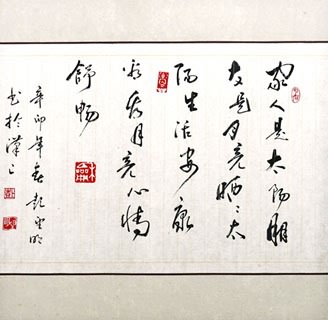 家人是太阳朋
友是月亮晒晒太
阳生活安康
看看月亮心情
舒畅
辛卯年春
书于汉上